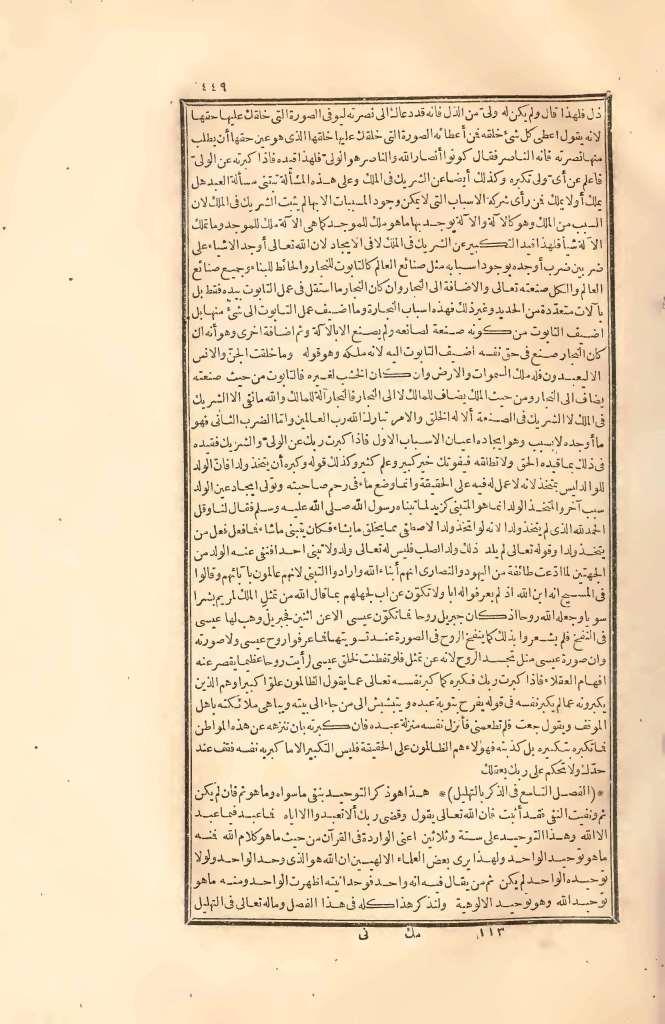 ٤٤٩
ذل فلهذا قال ولم يكن له ولىّ من الذل فانه قد دعاك الى نصرته ليوفى الصورة التى خلقك عليها حقها
لانه يقول اعطى كل شئ خلقه فمن أعطائه الصورة التى خلقك عليها خلقها الذى هو عين حقها أن يطلب
منها نصرته فانه الناصر فقال كونوا أنصار الله والناصر هو الولىّ فلهذا قيده فاذا كبرته عن الولىّ
فاعلم عن أىّ ولى تكبره وكذلك أيضا عن الشريك فى الملك وعلى هذه المسألة تبتنى مسألة العبد هل
يملك أو لا يملك فمن رأى شركة الاسباب التى لا يمكن وجود المسببات الا بها لم يثبت الشريك فى الملك لان
السبب من الملك وهو كالآلة والآلة يوجد بها ما هو ملك للموجد كما هى الآلة ملك للموجد وما تملك
الآلة شيأ فلهذا قيد التكبير عن الشريك فى الملك لا فى الايجاد لان الله تعالى أوجد الاشياء على
ضربين ضرب أوجده بوجود أسبابه مثل صنائع العالم كالتابوت للنجار والحائط للبناء وجميع صنائع
العالم والكل صنعته تعالى والاضافة الى النجار وان كان النجار ما استقل فى عمل التابوت بيده فقط بل
بآلات متعدّدة من الحديد وغير ذلك فهذه اسباب النجارة وما اضيف عمل التابوت الى شئ منها بل
اضيف التابوت من كونه صنعة لصانعه ولم يصنع الا بالآلة وثم اضافة اخرى وهو أنه ان
كان النجار صنع فى حق نفسه أضيف التابوت اليه لانه ملكه وهو قوله وما خلقت الجنّ والانس
الا ليعبدون فله ملك السموات والارض وان كان الخشب لغيره فالتابوت من حيث صنعته
يضاف الى النجار ومن حيث الملك يضاف للمالك لا الى النجار فالنجار آلة للمالك والله ما نفى الا الشريك
فى الملك لا الشريك فى الصنعة ألا له الخلق والامر تبارك الله رب العالمين وأمّا الضرب الثانى فهو
ما أوجده لا بسبب وهو ايجاده اعيان الاسباب الاول فاذا كبرت ربك عن الولىّ والشريك فقيده
فى ذلك بما قيده الحق ولا تطلقه فيفوتك خير كبير وعلم كثير وكذلك قوله وكبره أن يتخذ ولدا فانّ الولد
للوالد ليس بمتخذ لانه لا عمل له فيه على الحقيقة وانما وضع ماء فى رحم صاحبته وتولى ايجاد عين الولد
سبب آخر والمتخذ الولد انما هو المتبنى كزيد لما تبناه رسول الله صلى الله عليه وسلم فقال لنا وقل
الحمد لله الذى لم يتخذ ولدا لانه لو اتخذ ولدا لاصطفى مما يخلق ما يشاء فكان يتبنى ما شاء فما فعل فعل من
يتخذ ولدا وقوله تعالى لم يلد ذلك ولد الصلب فليس له تعالى ولد ولا تبنى أحدا فنفى عنه الولد من
الجهتين لما ادّعت طائفة من اليهود والنصارى انهم أبناء الله وأرادوا التبنى لانهم عالمون بآبائهم وقالوا
فى المسيح انه ابن الله اذ لم يعرفوا له أبا ولا تكوّن عن أب لجهلهم بما قال الله من تمثل الملك لمريم بشرا
سويا وجعله الله روحا اذ كان جبريل روحا فما تكوّن عيسى الا عن اثنين فجبريل وهب لها عيسى
فى النفخ فلم يشعروا بذلك كما ينفخ الروح فى الصورة عند تسويتها فما عرفوا روح عيسى ولا صورته
وان صورة عيسى مثل تجسد الروح لانه عن تمثل فلو تفطنت لخلق عيسى لرأيت روحا عظيما يقصر عنه
افهام العقلاء فاذا كبرت ربك فكبره كما كبر نفسه تعالى عما يقول الظالمون علوّا كبيرا وهم الذين
يكبرونه عما لم يكبر نفسه فى قوله يفرح بتوبة عبده ويتبشبش الى من جاء الى بيته ويباهى ملائكته باهل
الموقف ويقول جعت فلم تطعمنى فأنزل نفسه منزلة عبده فان كبرته بان تنزهه عن هذه المواطن
فما تكبره بتكبيره بل كذبته فهؤلاء هم الظالمون على الحقيقة فليس التكبير الا ما كبر به نفسه فقف عند
حدّك ولا تحكم على ربك بعقلك
*(الفصل التاسع فى الذكر بالتهليل)* هذا هو ذكر التوحيد بنفى ما سواه وما هو ثم فان لم يكن
ثم ونفيت النفى فقد أثبت فان الله تعالى يقول وقضى ربك ألا تعبدوا الا اياه فما عبد فيما عبد
الا الله وهذا التوحيد على ستة وثلاثين اعنى الواردة فى القرآن من حيث ما هو كلام الله فمنه
ما هو توحيد الواحد ولهذا يرى بعض العلماء الالهيين ان الله هو الذى وحد الواحد ولولا
توحيده الواحد لم يكن ثم من يقال فيه انه واحد فوحدانيته أظهرت الواحد ومنه ما هو
توحيد الله وهو توحيد الالوهية ولنذكر هذا كله فى هذا الفصل وما له تعالى فى التهليل
١١٣ مك نى